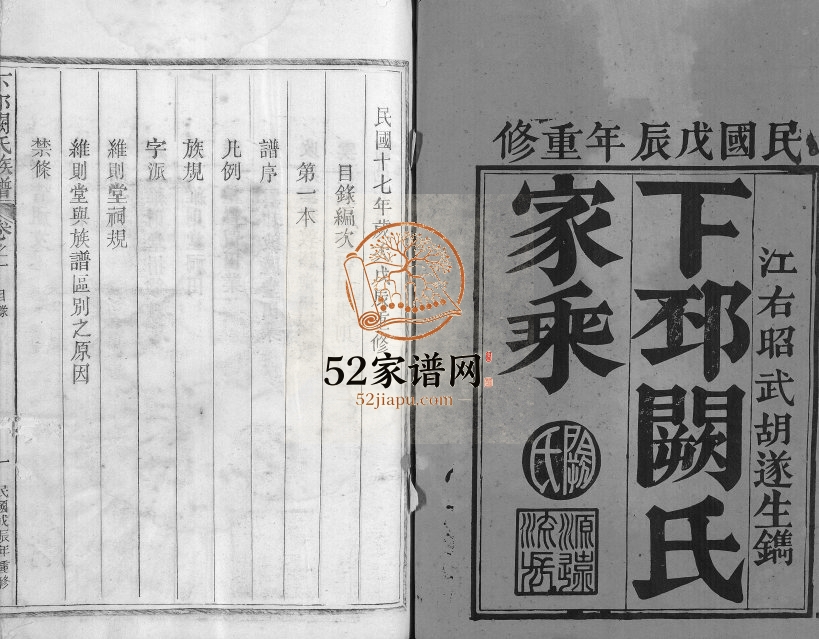 民國戊辰年重修
江右昭武胡遂生鐫
下邳闕氏
家乘
闕氏
源遠流長
民國十七年歲次戊辰重修
目錄編次
第一本
譜序
凡例
族規
字派
維則堂祠規
維則堂與族譜區別之原因
禁條
下邳闕氏族譜
卷之一
目錄
一
民國戊辰年重修
52家谱网
52jiapu.com